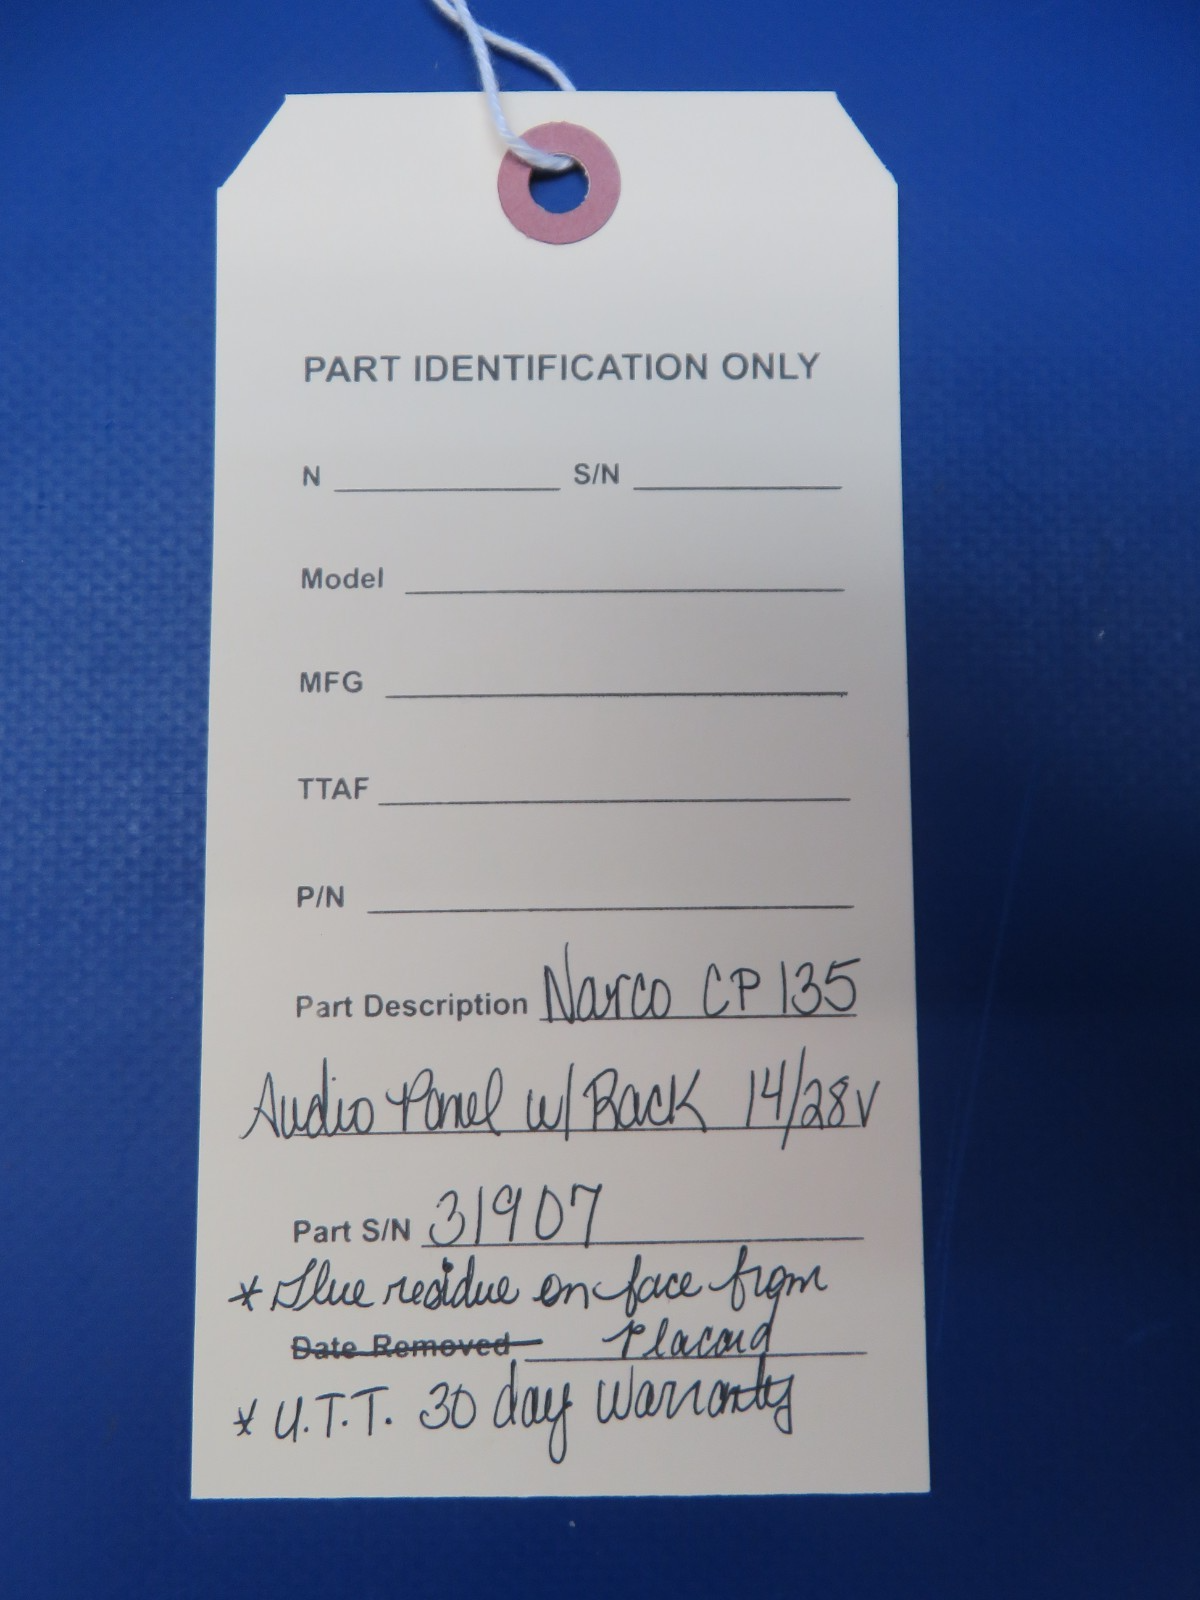 PART IDENTIFICATION ONLY
N S/N
Model
MFG
TTAF
P/N
Part Description Narco CP 135
Audio Panel w/ Rack 14/28V
Part S/N 31907
* Glue residue on face from
Date Removed Placard
* U.T.T. 30 day Warranty